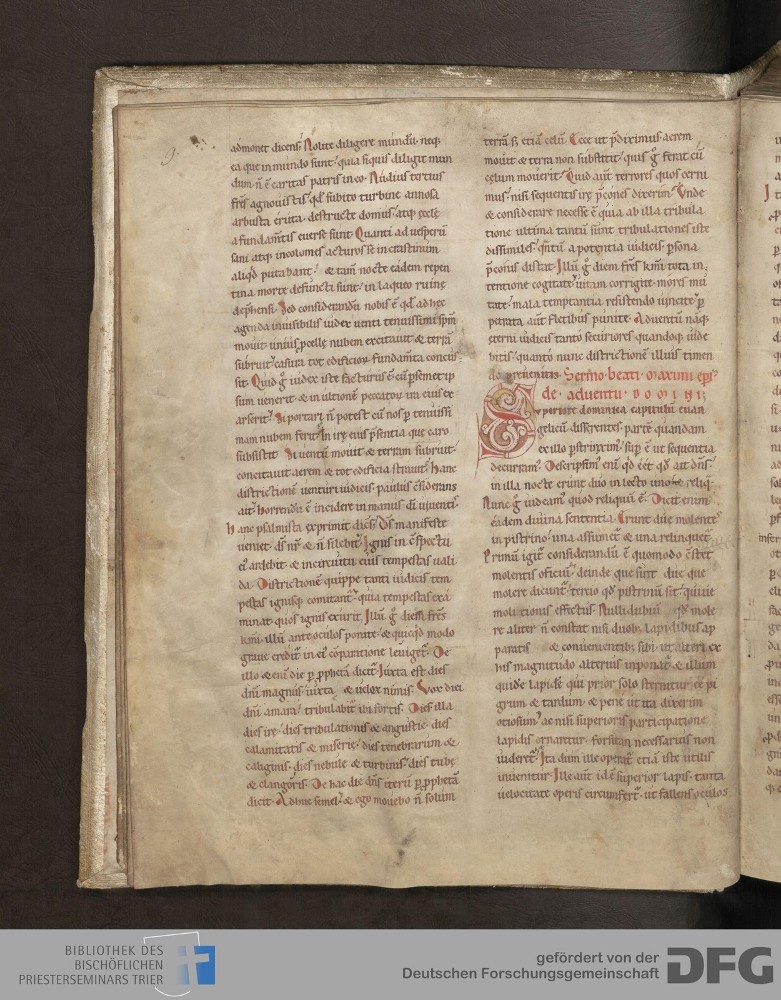 admonet dicens. Nolite diligere mundū. neq;
ea que in mundo sunt. quia siquis diligit mun
dum. n̄ ē caritas patris in eo. Nudius tertius
frēs agnouistis. qđ subito turbine annosa
arbusta eruta. destructe domus. atq; eccłe
a fundamtis euerse sunt. Quanti ad uesperū
sani atq; incolomes acturos se in crastinum
aliqđ putabant. & tam̄ nocte eadem repen
tina morte defuncti sunt. in laqueo ruine
dep̄hensi. Sed considerandū nobis ē qđ ad hęc
agenda inuisibilis iudex uenti tenuissimi spm̄
mouit. unius p̱cellę nubem excitauit & terrā
subruit. casura tot edificior̄ fundam̄ta concus
sit. Quid g̊ iudex iste facturus ē. cū p̱ semetip̄
sum uenerit. & in ultionē peccator̄ ira eius ex
arserit. Si portari n̄ potest cū nos p̱ tenuissi
mam nubem ferit. In irę eius p̄sentia que caro
subsistit. Si uentū mouit & terram subruit.
concitauit aerem & tot edificia strauit. Hanc
districtionē uenturi iudicis paulus c̄siderans
ait. horrendū ē incidere in manus dī uiuentis.
Hanc psalmista exprimit dicēs. Dś manifeste
ueniet. dś nr̄ & n̄ silebit. Ignis in c̄spectu
ei' ardebit. & in circuitu eius tempestas uali
da. Districtionē quippe tanti iudicis tem
pestas ignisq; comitant̄. quia tempestas exa
minat. quos ignis exurit. Illū g̊ diem frēs
kmi. illū ante oculos ponite. & quicqđ modo
graue credit̄. in ei' cōparatione leuiget̄. De
illo & enī die p̱ p̱phetā dicit̄. Iuxta est dies
dn̄i magnus. iuxta & uelox nimis. Vox diei
dn̄i amara. tribulabit̄ ibi fortis. Dies illa
dies irę. dies tribulationis & angustie. dies
calamitatis & miserie. dies tenebrarum &
caliginis. dies nebule & turbinis. dies tubę
& clangoris. De hac die dn̄s iterū p̱ p̱phetā
dicit. Adhuc semel. & ego mouebo n̄ solum
terrā. s; etiā celū. Ecce ut p̄diximus aerem
mouit & terra non substitit. quis g̊ ferat cū
celum mouerit. Quid aut̄ terrores quos cerni
mus. nisi sequentis irę p̄cones dixerim. Vnde
& considerare necesse ē quia ab illa tribula
tione ultima tantū sunt tribulationes iste
dissimiles. q̄ntū a potentia iudicis. p̱sona
p̄conis distat. Illū g̊ diem frēs kmi. tota in
tentione cogitate. uitam corrigite. mores mu
tate. mala temptantia resistendo uincite. p̱
petrata aut̄ fletibus punite. Aduentū náq;
eterni iudicis tanto securiores quandoq; uide
bitis. quanto nunc districtionē illius timen
do preuenitis. Sermo beati Maximi epī
de aduentu domini
Svperiore dominica capituli euan
gelicū disserentes. parte quandam
ex illo p̱strinxim'. sup̱ ē ut sequentia
decurram'. Descripsim' enī. qđ ēēt qđ ait dn̄s.
in illa nocte erunt duo in lecto uno & reliq̄.
Nunc g̊ uideam' quod reliquū ē. Dicit enim
eadem diuina sententia. Erunt due molentes
in pistrino. una assumet̄ & una relinquet̄.
Primū igit̄ considerandū ē quomodo c̄stet
molentis oficiū. deinde que sint due que
molere dicunt̄. tercio qđ pistrinū sit. cuiue
molitionis effectus. Nulli dubiū qđ mole
re aliter n̄ constat nisi duob; lapidibus ap
paratis & conuenientib; sibi. ut alteri ex
his magnitudo alterius inponat̄. & illum
quidē lapidē qui prior solo sternitur. ēē pi
grum & tardum. & pene ut ita dixerim
otiosum. ac nisi superioris participatione
lapidis ornaretur. forsitan necessarius non
uideret̄. Ita dum ille operat̄ etiā iste utilis
inuenitur. Ille aut̄ idē superior lapis. tanta
uelocitate operis circumfert̄. ut fallens oculos
BIBLIOTHEK DES
BISCHÖFLICHEN
PRIESTERSEMINARS TRIER
gefördert von der
Deutschen Forschungsgemeinschaft
DFG